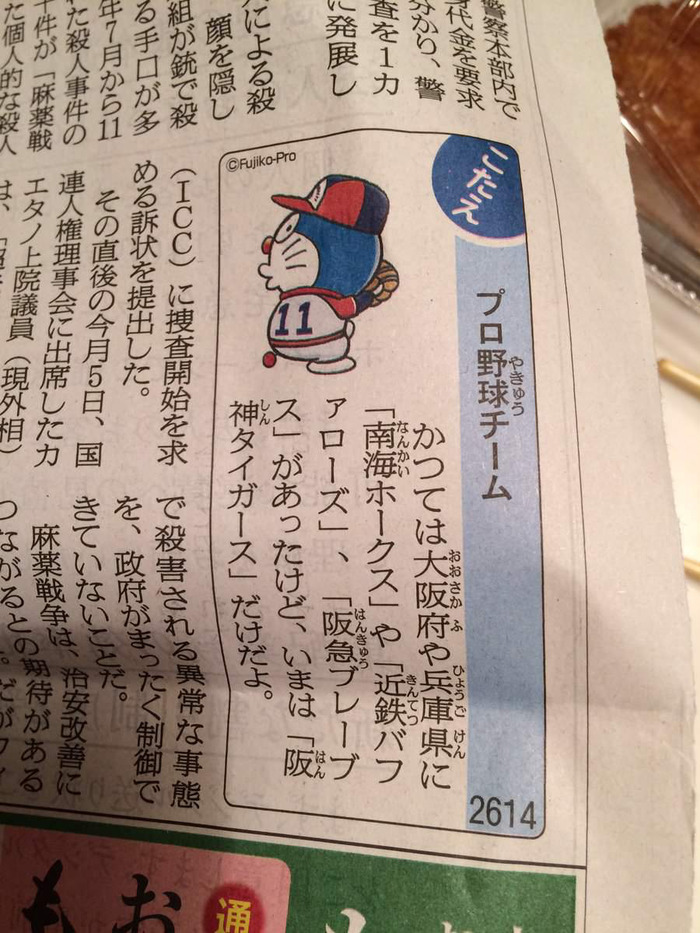 警察本部内で
身代金を要求
分かり、警
査を1カ
に発展し
による殺
顔を隠し
組が銃で殺
る手口が多
年7月から11
た殺人事件の
十件が「麻薬戦
た個人的な殺人
こたえ
©Fujiko-Pro
11
プロ野球チーム
やきゅう
かつては大阪府や兵庫県に
おおさかふ
ひょうごけん
「南海ホークス」や「近鉄バフ
なんかい
きんてつ
ァローズ」、「阪急ブレーブ
はんきゅう
ス」があったけど、いまは「阪
はん
神タイガース」だけだよ。
しん
2614
（ICC）に捜査開始を求
める訴状を提出した。
その直後の今月5日、国
連人権理事会に出席したカ
エタノ上院議員（現外相）
で殺害される異常な事態
を、政府がまったく制御で
きていないことだ。
麻薬戦争は、治安改善に
つながるとの期待がある
通
お
も